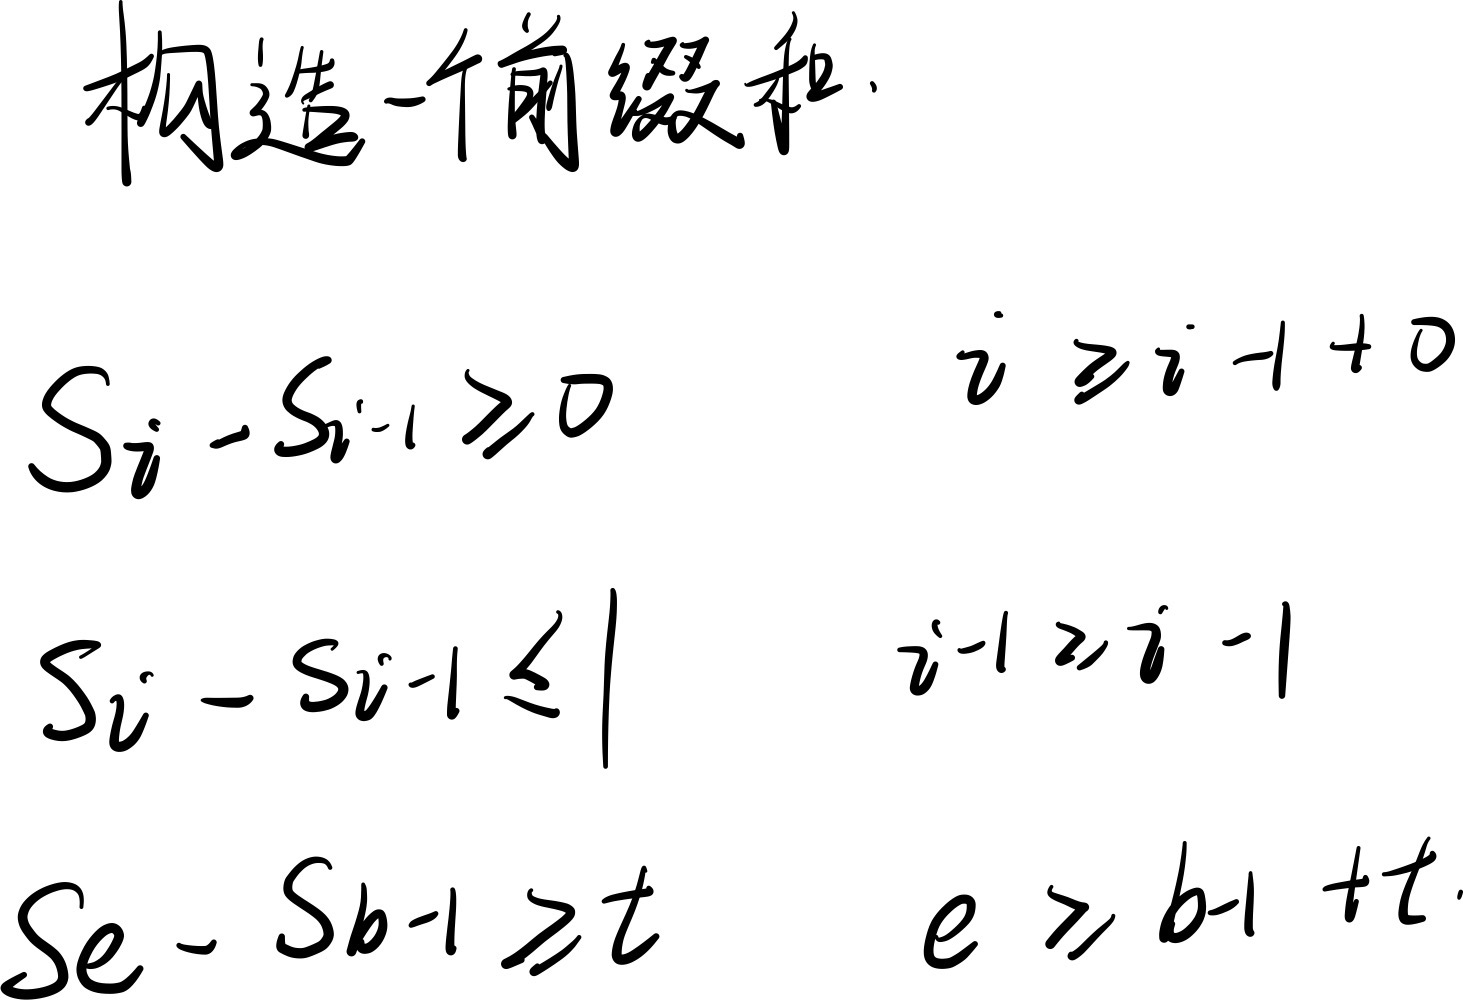 构造一个前缀和.
Si - Si-1 ≥ 0 i ≥ i - 1 + 0
Si - Si-1 ≤ 1 i-1 ≥ i - 1
Se - Sb-1 ≥ t e ≥ b-1 + t.